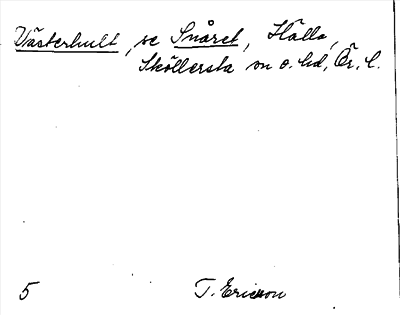 Västerhult, se Snåret, Hälla,
Sköllersta sn o. hd, Ör. l.
5 T. Ericson